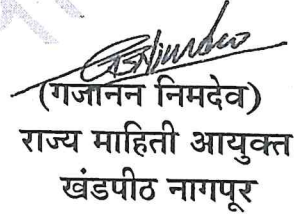 (गजानन निमदेव)
राज्य माहिती आयुक्त
खंडपीठ नागपूर